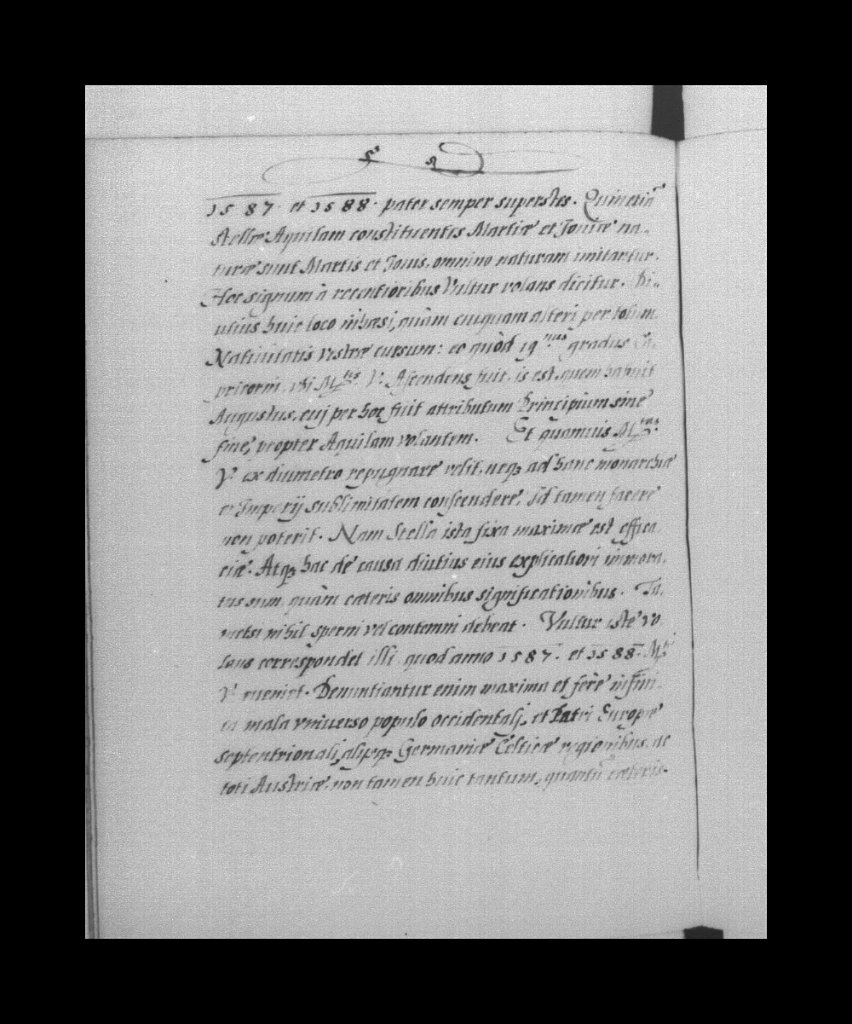 1587. et 1588. pater semper superstes. Quinetiã
stellæ Aquilam constituentes Martiæ et Jouiæ na-
turæ sunt Martis et Jouis, omnino naturam imitantur.
Hoc signum à recentioribus Vultur volans dicitur. Di-
utius huic loco inhæsi, quàm cuiquam alteri per totum
Natiuitatis vestræ cursum: eo quòd 19 gradus Ca-
pricorni, vbi M.tas V. Ascendens fuit, is est, quem habuit
Augustus, cuj per hoc fuit attributum Principium sine
fine, propter Aquilam volantem. Et quamuis M.tas
V. ex diametro repugnare velit, neq3 ad hanc monarchiæ
et Imperij sublimitatem conscendere, id tamen facere
non poterit. Nam Stella ista fixa maximæ est effica
ciæ. Atq3 hac de causa diutius eius explicationi immora-
tus sum, quàm cæteris omnibus significationibus. Ta-
metsi nihil sperni vel contemni debeat. Vultur iste vo
lans correspondet illi, quod anno 1587. et 1588. M.ti
V. eueniet. Denuntiantur enim maxima et ferè infini-
ta mala vniuerso populo occidentalj, et Patri Europæ
septentrionali, alijsq3 Germaniæ Celticæ regionibus, ac
toti Austriæ, non tamen huic tantum, quantũ cæteris.